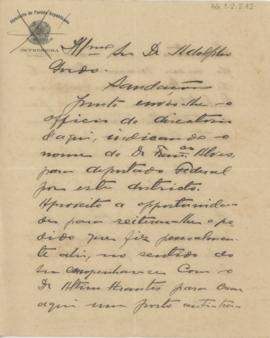 Directorio do Partido Republicano
Illmo Sr Dr Adolpho
Gordo.
Saudações
Junto envio-lhe o
officio do directorio
d'aqui, indicando o
nome do Dr Franco Alves,
para deputado Federal
por este districto.
Aproveito a opportunida-
de para reiterar-lhe o pe-
dido que fiz pessoalmen-
te ahi, no sentido do
Sr empenhar-se com o
Dr Altino Arantes para crear
aqui um posto